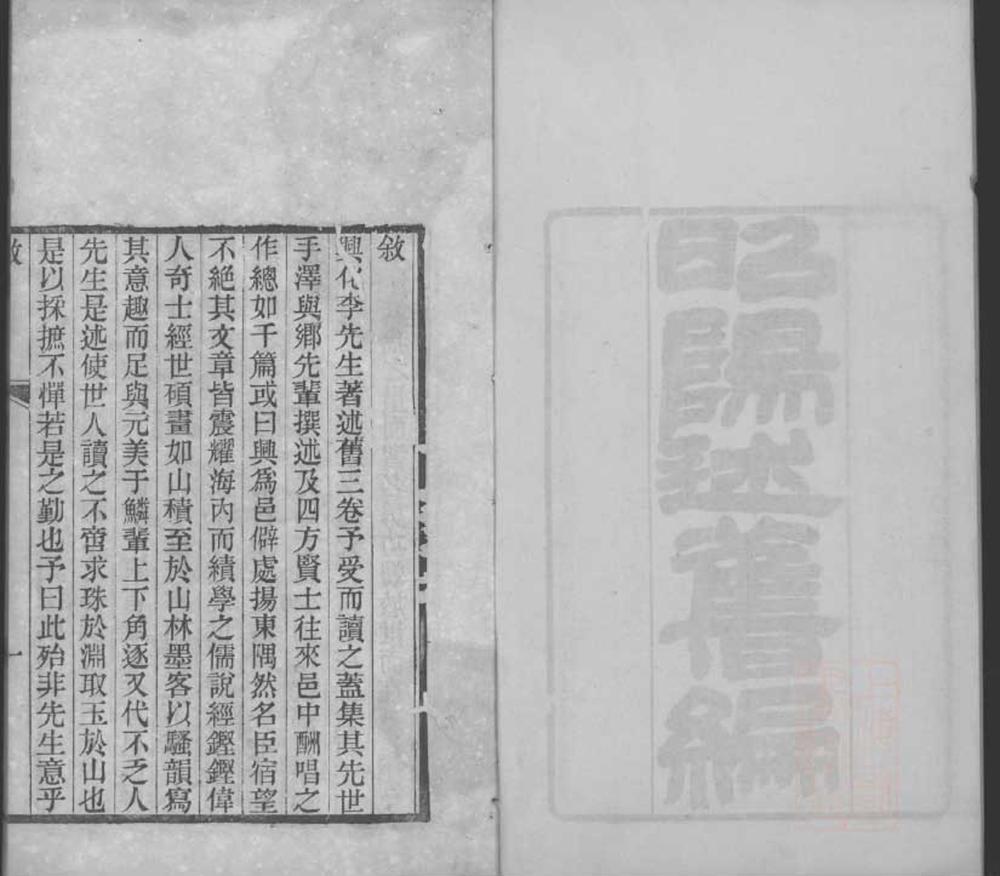 昭陽述舊編
敘
興化李先生著述舊三卷予受而讀之蓋集其先世
手澤與鄉先輩撰述及四方賢士往來邑中酬唱之
作總如千篇或曰興爲邑僻處揚東隅然名臣宿望
不絕其文章皆震耀海內而績學之儒說經鏗鏗偉
人奇士經世碩畫如山積至於山林墨客以騷韻寫
其意趣而足與元美于鱗輩上下角逐又代不乏人
先生是述使世人讀之不啻求珠於淵取玉於山也
是以採摭不憚若是之勤也予曰此殆非先生意乎
敘
一